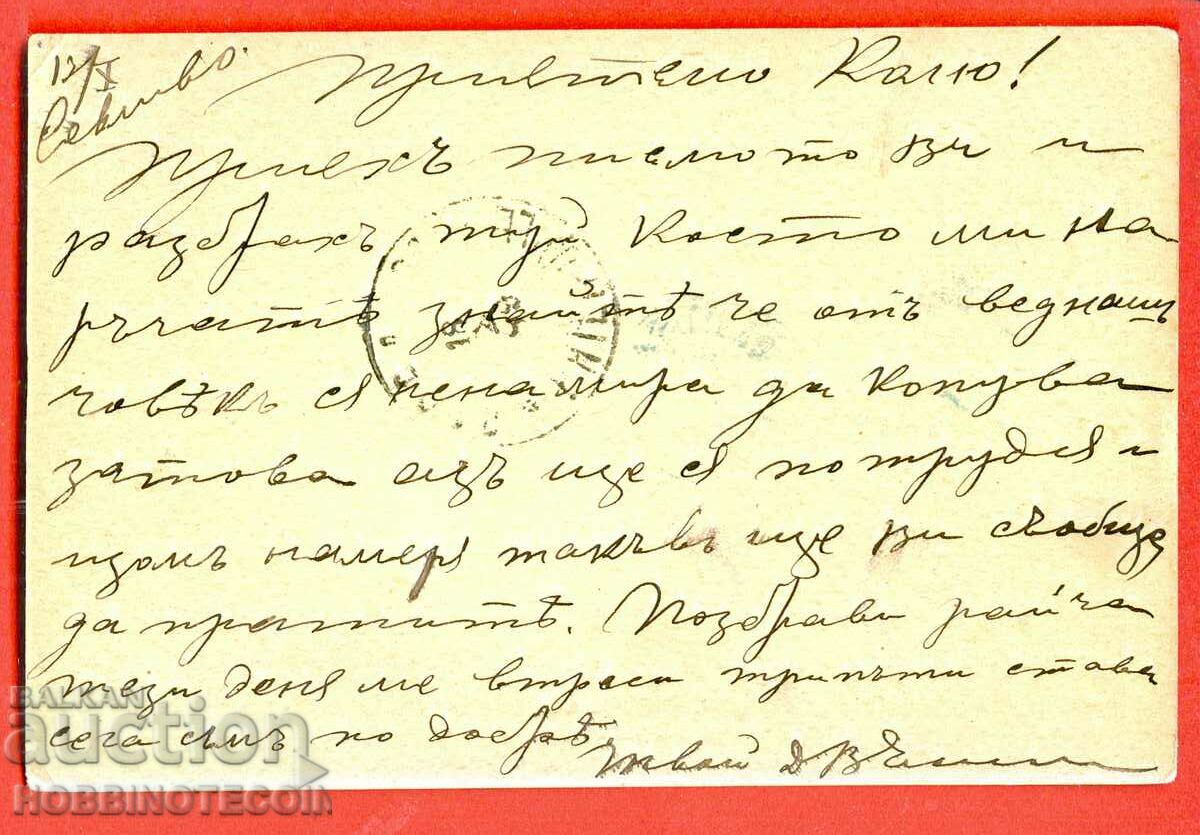 12/X
Севлиево.
Приятелю Калю!
Приехъ писмото ви и
разбрахъ туй коєто ми на
ръчатѣ знайтѣ че отъ веднашъ
човѣкъ ся ненамира да копува
затова азъ ще ся потрудя и
щомъ намеря такъвъ ще ви съобще
да пратитѣ. Поздрави райча
тези деня ме втреси трипъти става
сега съмъ по добрѣ.
BALKAN
auction
HOBBINOTECOIN